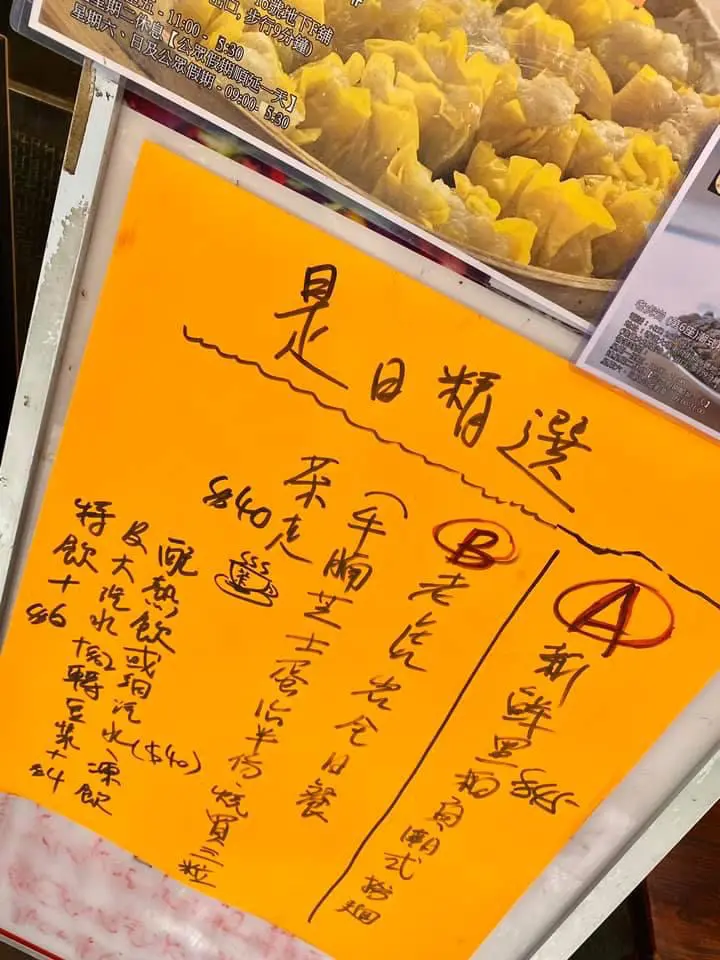 16號地下F舖
出口, 步行9分鐘)
五 - 11:00 - 5:30
星期二休息【公眾假期順延一天】
星期六、日及公眾假期 - 09:00- 5:30
是日精選
A
新鮮黑柏 潮式
B
老虎岩全日餐
(牛腩芝士蛋治半份燒賣三粒
茶走
$40
配熱飲或細汽水($40)凍飲
及大汽水 轉豆漿+$4
特飲+$6